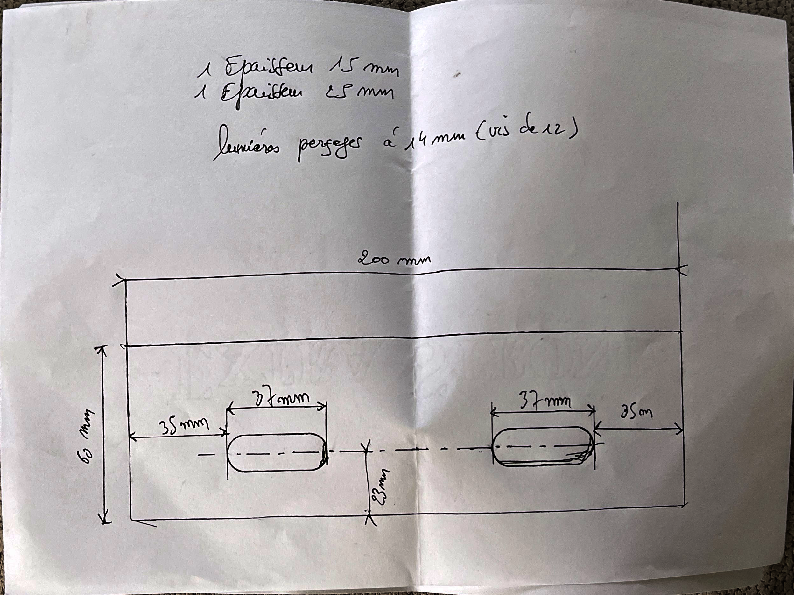 1 Epaisseur 15 mm
1 Epaisseur 25 mm
lumières perçages à 14 mm (vis de 12)
200 mm
37mm
37mm
35mm
35m
mm
23mm